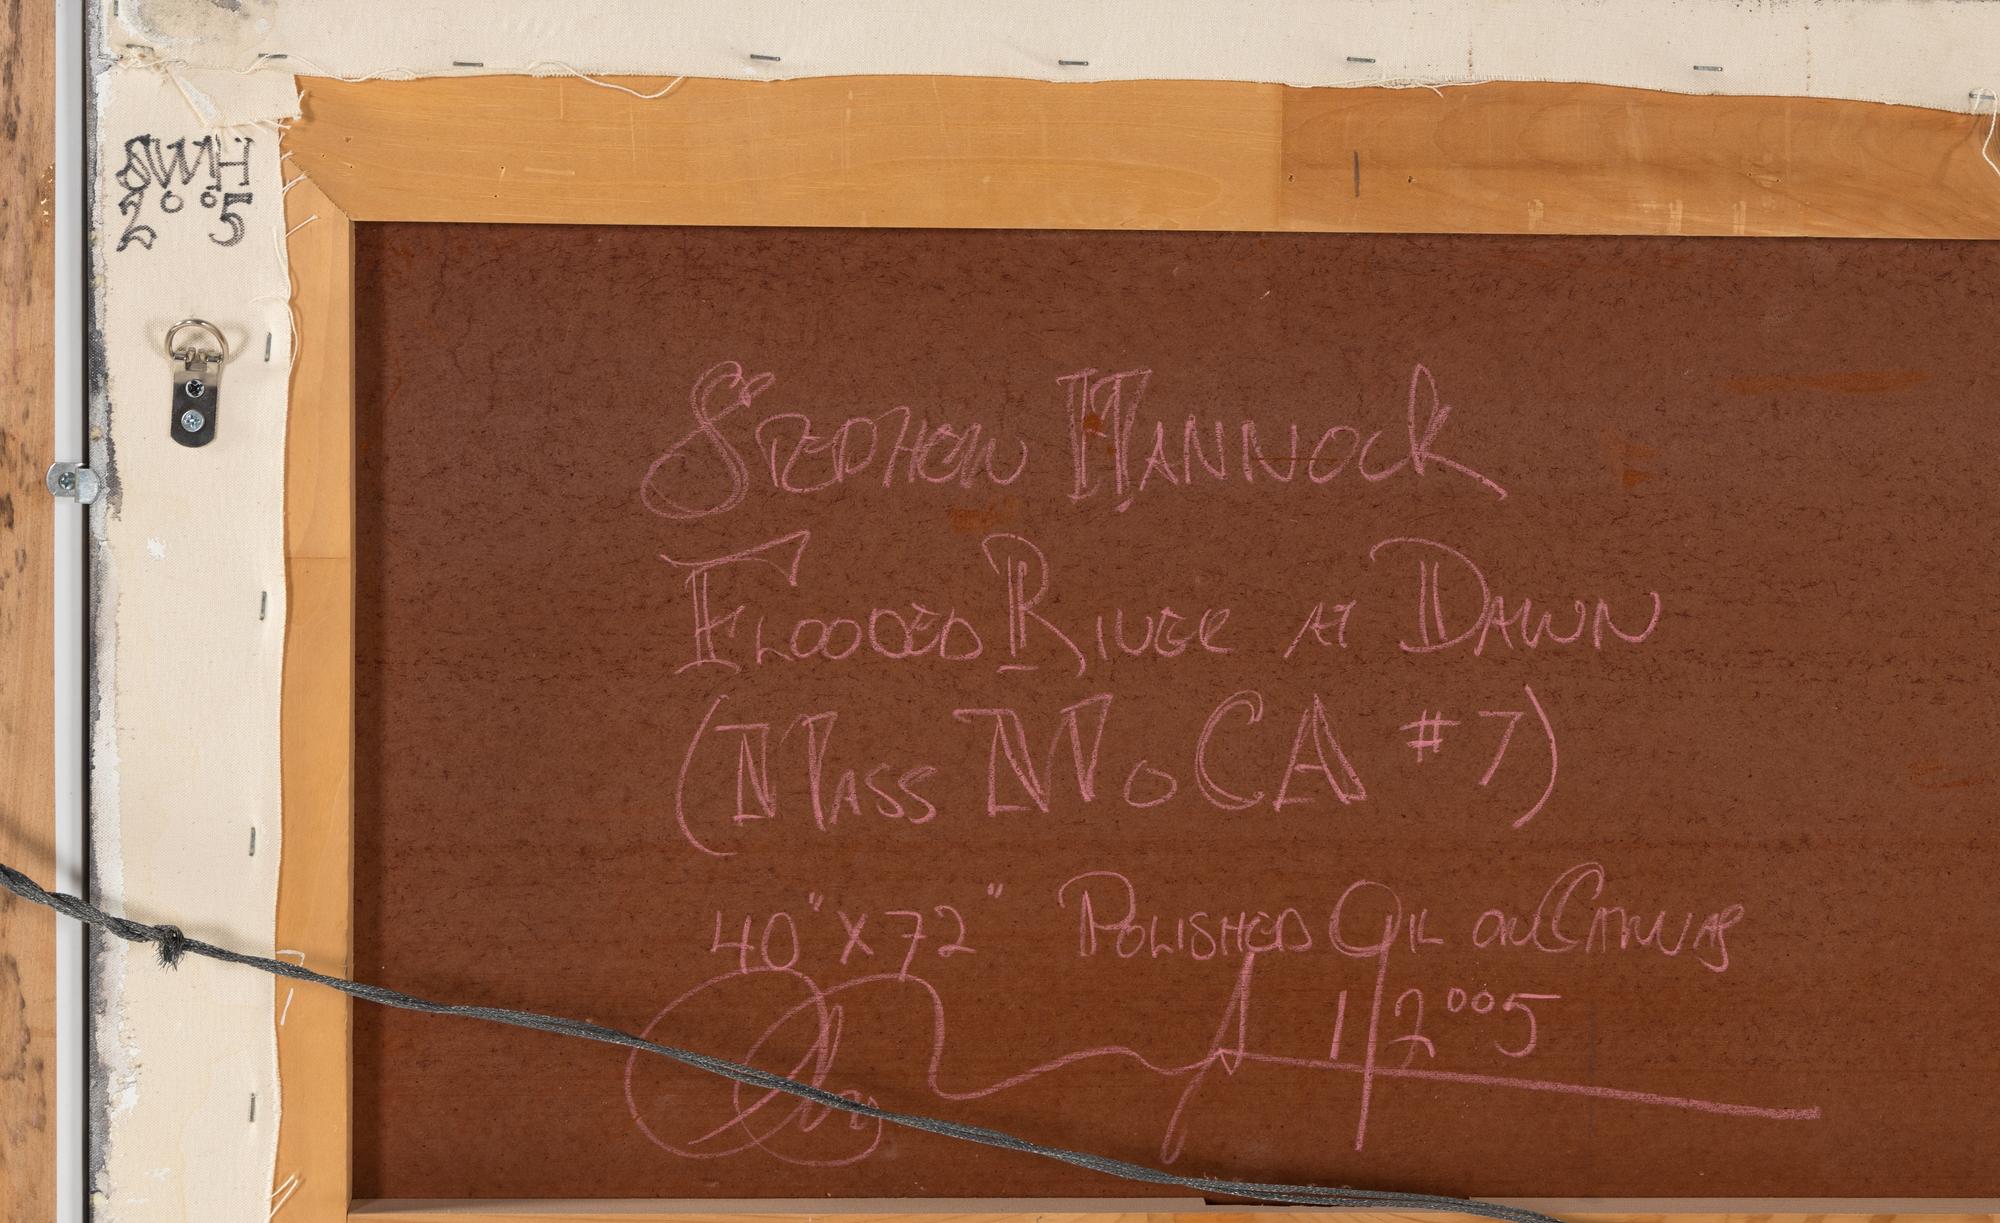 SWH
2005
Stephen Hannock
Flooded River at Dawn
(Mass MoCA #7)
40" x 72" Polished Oil on Canvas
2005